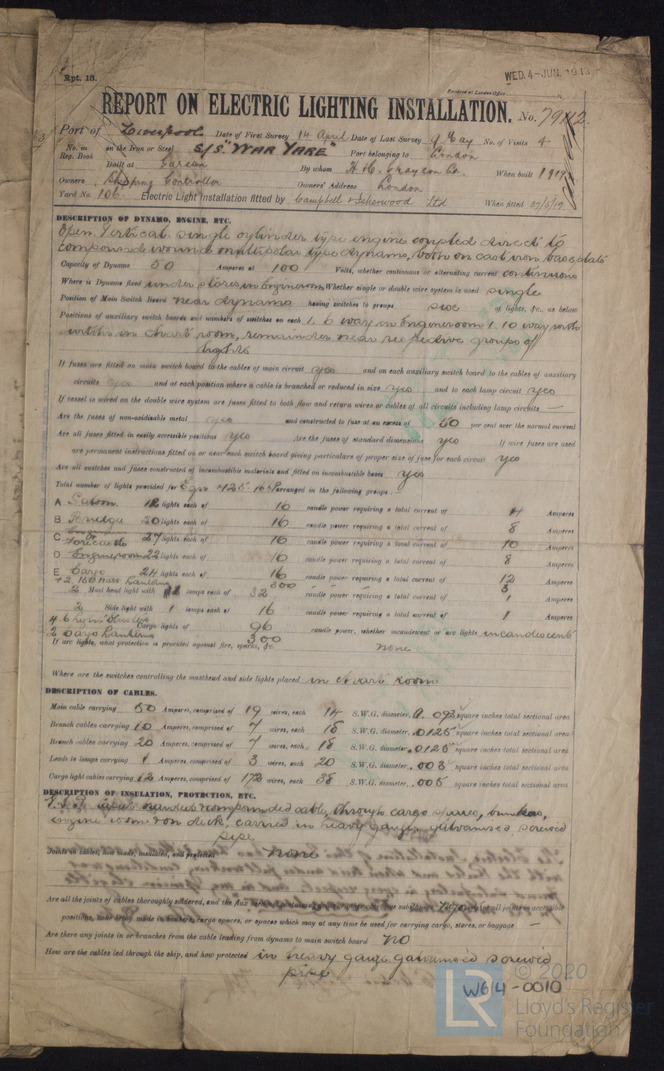 Rpt. 13.
WED. 4-JUN. 1919
Received at London Office
REPORT ON ELECTRIC LIGHTING INSTALLATION. No. 79112
Port of Liverpool Date of First Survey 14 April Date of Last Survey 9 May No. of Visits 4
No. in Reg. Book on the Iron or Steel S/S "WAR YARE" Port belonging to London
Built at Garston By whom H. C. Grayson Co. When built 1919
Owners Shipping Controller Owners' Address London
Yard No. 106 Electric Light Installation fitted by Campbell & Isherwood Ltd When fitted 27/5/19
DESCRIPTION OF DYNAMO, ENGINE, ETC.
Open Vertical single cylinder type engine coupled direct to
compound wound multipolar type dynamo, both on cast iron baseplate
Capacity of Dynamo 50 Amperes at 100 Volts, whether continuous or alternating current continuous
Where is Dynamo fixed under stores in Engineroom Whether single or double wire system is used single
Position of Main Switch Board near dynamo having switches to groups six of lights, &c., as below
Positions of auxiliary switch boards and numbers of switches on each 1. 6 way in Engineroom 1. 10 way with
in chart room, remainder near respective groups of
lights
If fuses are fitted on main switch board to the cables of main circuit yes and on each auxiliary switch board to the cables of auxiliary
circuits yes and at each position where a cable is branched or reduced in size yes and to each lamp circuit yes
If vessel is wired on the double wire system are fuses fitted to both flow and return wires or cables of all circuits including lamp circuits —
Are the fuses of non-oxidizable metal yes and constructed to fuse at an excess of 50 per cent over the normal current
Are all fuses fitted in easily accessible positions yes Are the fuses of standard dimensions yes If wire fuses are used
are permanent instructions fitted on or near each switch board giving particulars of proper size of fuse for each circuit yes
Are all switches and fuses constructed of incombustible materials and fitted on incombustible bases yes
Total number of lights provided for arranged in the following groups:
A Saloon lights each of 16 candle power requiring a total current of 14 Amperes
B Bridge 20 lights each of 16 candle power requiring a total current of 8 Amperes
C Forecastle 27 lights each of 16 candle power requiring a total current of 10 Amperes
D Engineroom 22 lights each of 16 candle power requiring a total current of 8 Amperes
E Cargo 24 lights each of 16 candle power requiring a total current of 12 Amperes
300
2 Mast head light with lamps each of 32 candle power requiring a total current of Amperes
2 Side light with 1 lamps each of 16 candle power requiring a total current of 1 Amperes
4 Cargo lights of 96 candle power, whether incandescent or arc lights incandescent
2 Cargo Lanterns 300
If arc lights, what protection is provided against fire, sparks, &c. none
Where are the switches controlling the masthead and side lights placed in chart room
DESCRIPTION OF CABLES.
Main cable carrying 50 Amperes, comprised of 19 wires, each 14 S.W.G. diameter, square inches total sectional area
Branch cables carrying 10 Amperes, comprised of 7 wires, each 18 S.W.G. diameter, .0125 square inches total sectional area
Branch cables carrying 20 Amperes, comprised of 7 wires, each 18 S.W.G. diameter, .0125 square inches total sectional area
Leads to lamps carrying 1 Amperes, comprised of 3 wires, each 20 S.W.G. diameter, .003 square inches total sectional area
Cargo light cables carrying 12 Amperes, comprised of 172 wires, each 38 S.W.G. diameter, .005 square inches total sectional area
DESCRIPTION OF INSULATION, PROTECTION, ETC.
cable, through cargo spaces, bunkers,
engine room & on deck, carried in heavy gauge galvanised screwed
pipe
Joints in cables, how made, insulated, and protected none
Are all the joints of cables thoroughly soldered,
positions, none being made in bunkers, cargo spaces, or spaces which may at any time be used for carrying cargo, stores, or baggage —
Are there any joints in or branches from the cable leading from dynamo to main switch board no
How are the cables led through the ship, and how protected in heavy gauge galvanised screwed
pipe
W614-0010
LR
© 2020
Lloyd's Register
Foundation